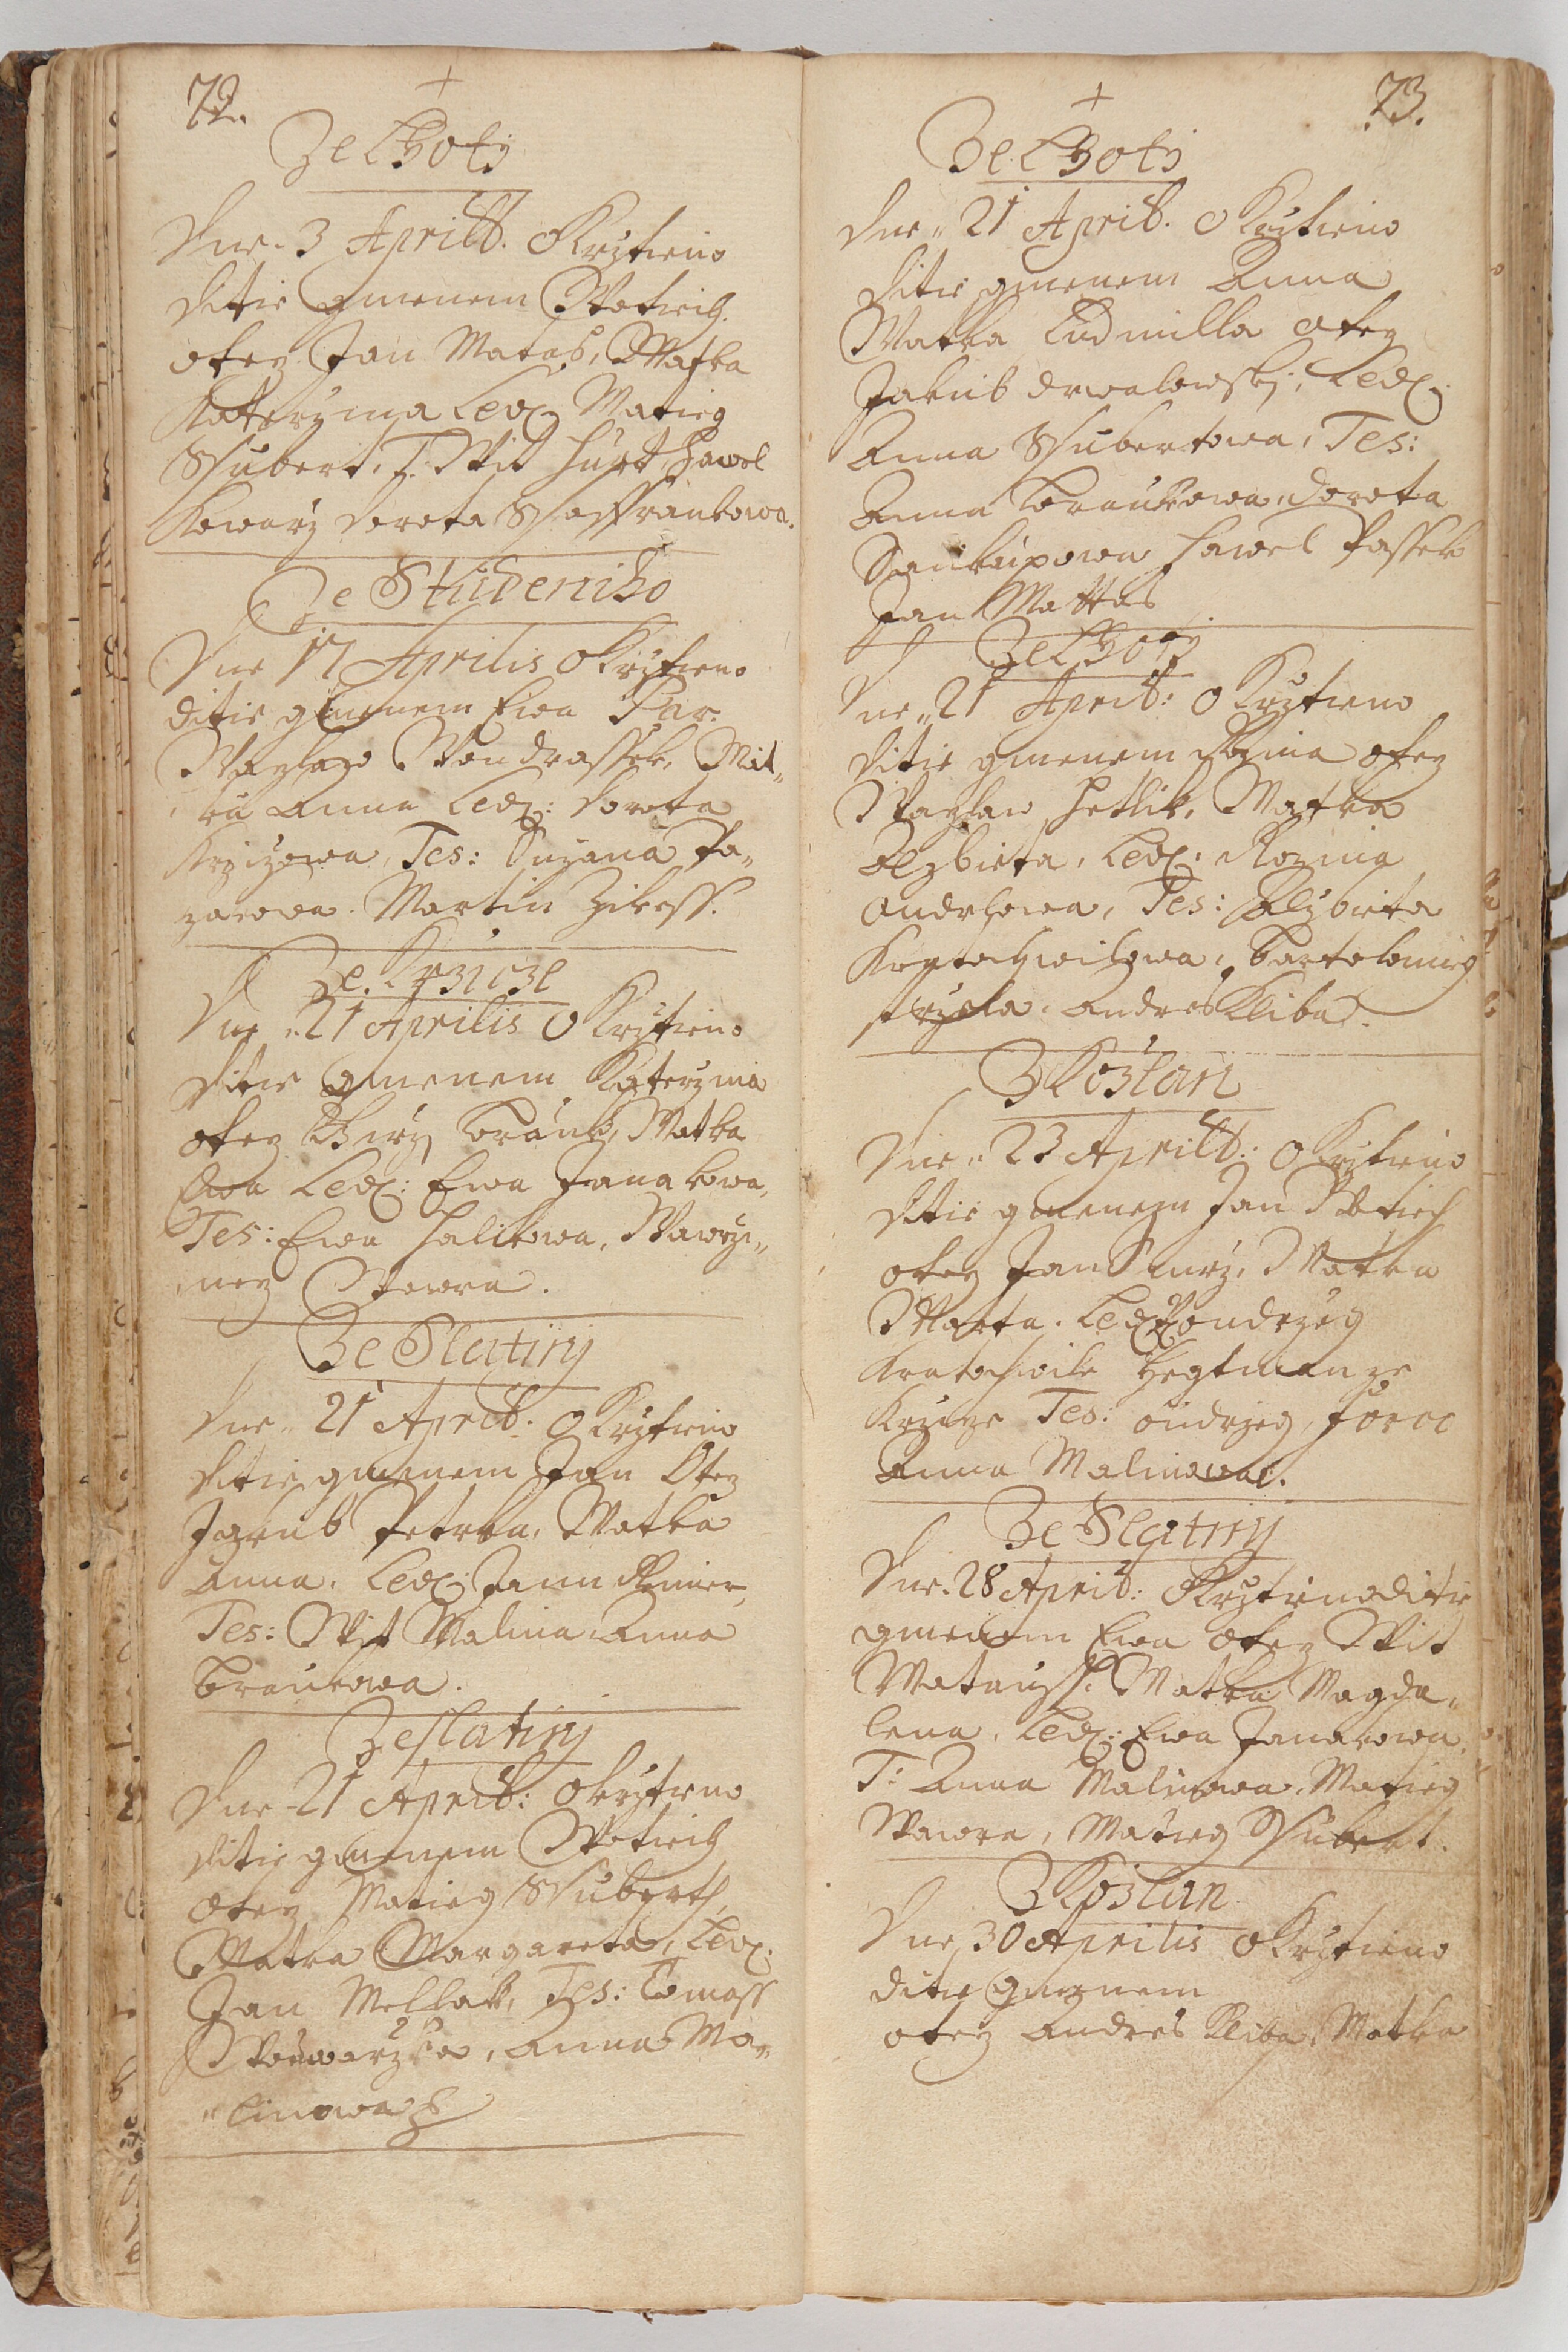 72.
+
Ze Lhoty
Dne 3 Aprill. Okrztieno
ditie gmenem Wotiech.
otecz Jan Matas, Matka
Katerzina Lev: Matieg
Ssubert, T. Wit hurt, Hawel
Kowarz dorota Ssaffrankowa.
Ze Studeniho
Dne 17 Aprilis Okrztieno
ditie gmenem Ewa Par.
Waczlaw Wondrassek, Mat„
ka Anna Lev: dorota
Krzizowa, Tes: Suzana Pa„
zarowa. Martin Zikess.
Ze Krzicze
Dne „21 Aprilis Okrztieno
ditie gmenem Katerzina
otecz Girzy Brauk, Matka
Ewa Lev: Ewa Janakowa,
Tes: Ewa halikowa, Wawrzi„
necz Wawra.
Ze Slatiny
Dne „ 21 April. Okrztieno
ditie gmenem Jan Otecz
Jakub Petrka, Matka
Anna. Lev: Jann
Tes: Wit Malina Anna
Braukowa.
Ze slatiny
Dne - 21 April: Okrztieno
ditie gmenem Wotiech
Otecz Matieg Ssuberth,
Matka Margareta, Lev:
Jan Mellak, Tes: Tomass
Anna Ma„
„linowa
73.
+
Ze Lhoti
Dne „ 21 April. Okrztieno
ditie gmenem Anna
Matka Ludmilla otecz
Jakub drwalowskj, Lev:
Anna Ssubertowa, Tes:
Anna Braukowa, dorota
Saukupowa Hawel Passek
Jan Mattas
Ze Lhoty
Dne „ 21 April: Okrztieno
ditie gmenem Rozina otecz
Waczlaw hetlik, Matka
Alzbieta, Lev: Rozina
Ondrhowa, Tes: Alzbieta
Kratochwilowa, Bartolomieg
Andres Kliba.
Z Kozlan
Dne „ 23 Aprill: Okrztieno
ditie gmenem Jan Wotiech
otecz Jan Matka
Marta. Lev: Wondrzeg
Kratochwile hegtman ze
Krzicze Tes: ondrzeg,
Anna Malinowa.
Ze Slatiny
Dne „ 28 April: Okrztieno ditie
gmenem Ewa Otecz Wit
Matausch. Matka Magda„
lena. Lev: Ewa Janakowa.
T: Anna Malinowa, Matieg
Wawra, Matieg Ssubert.
Z Kozlan
Dne „ 30 Aprilis Okrztieno
ditie gmenem
otecz Andres Kliba, Matka